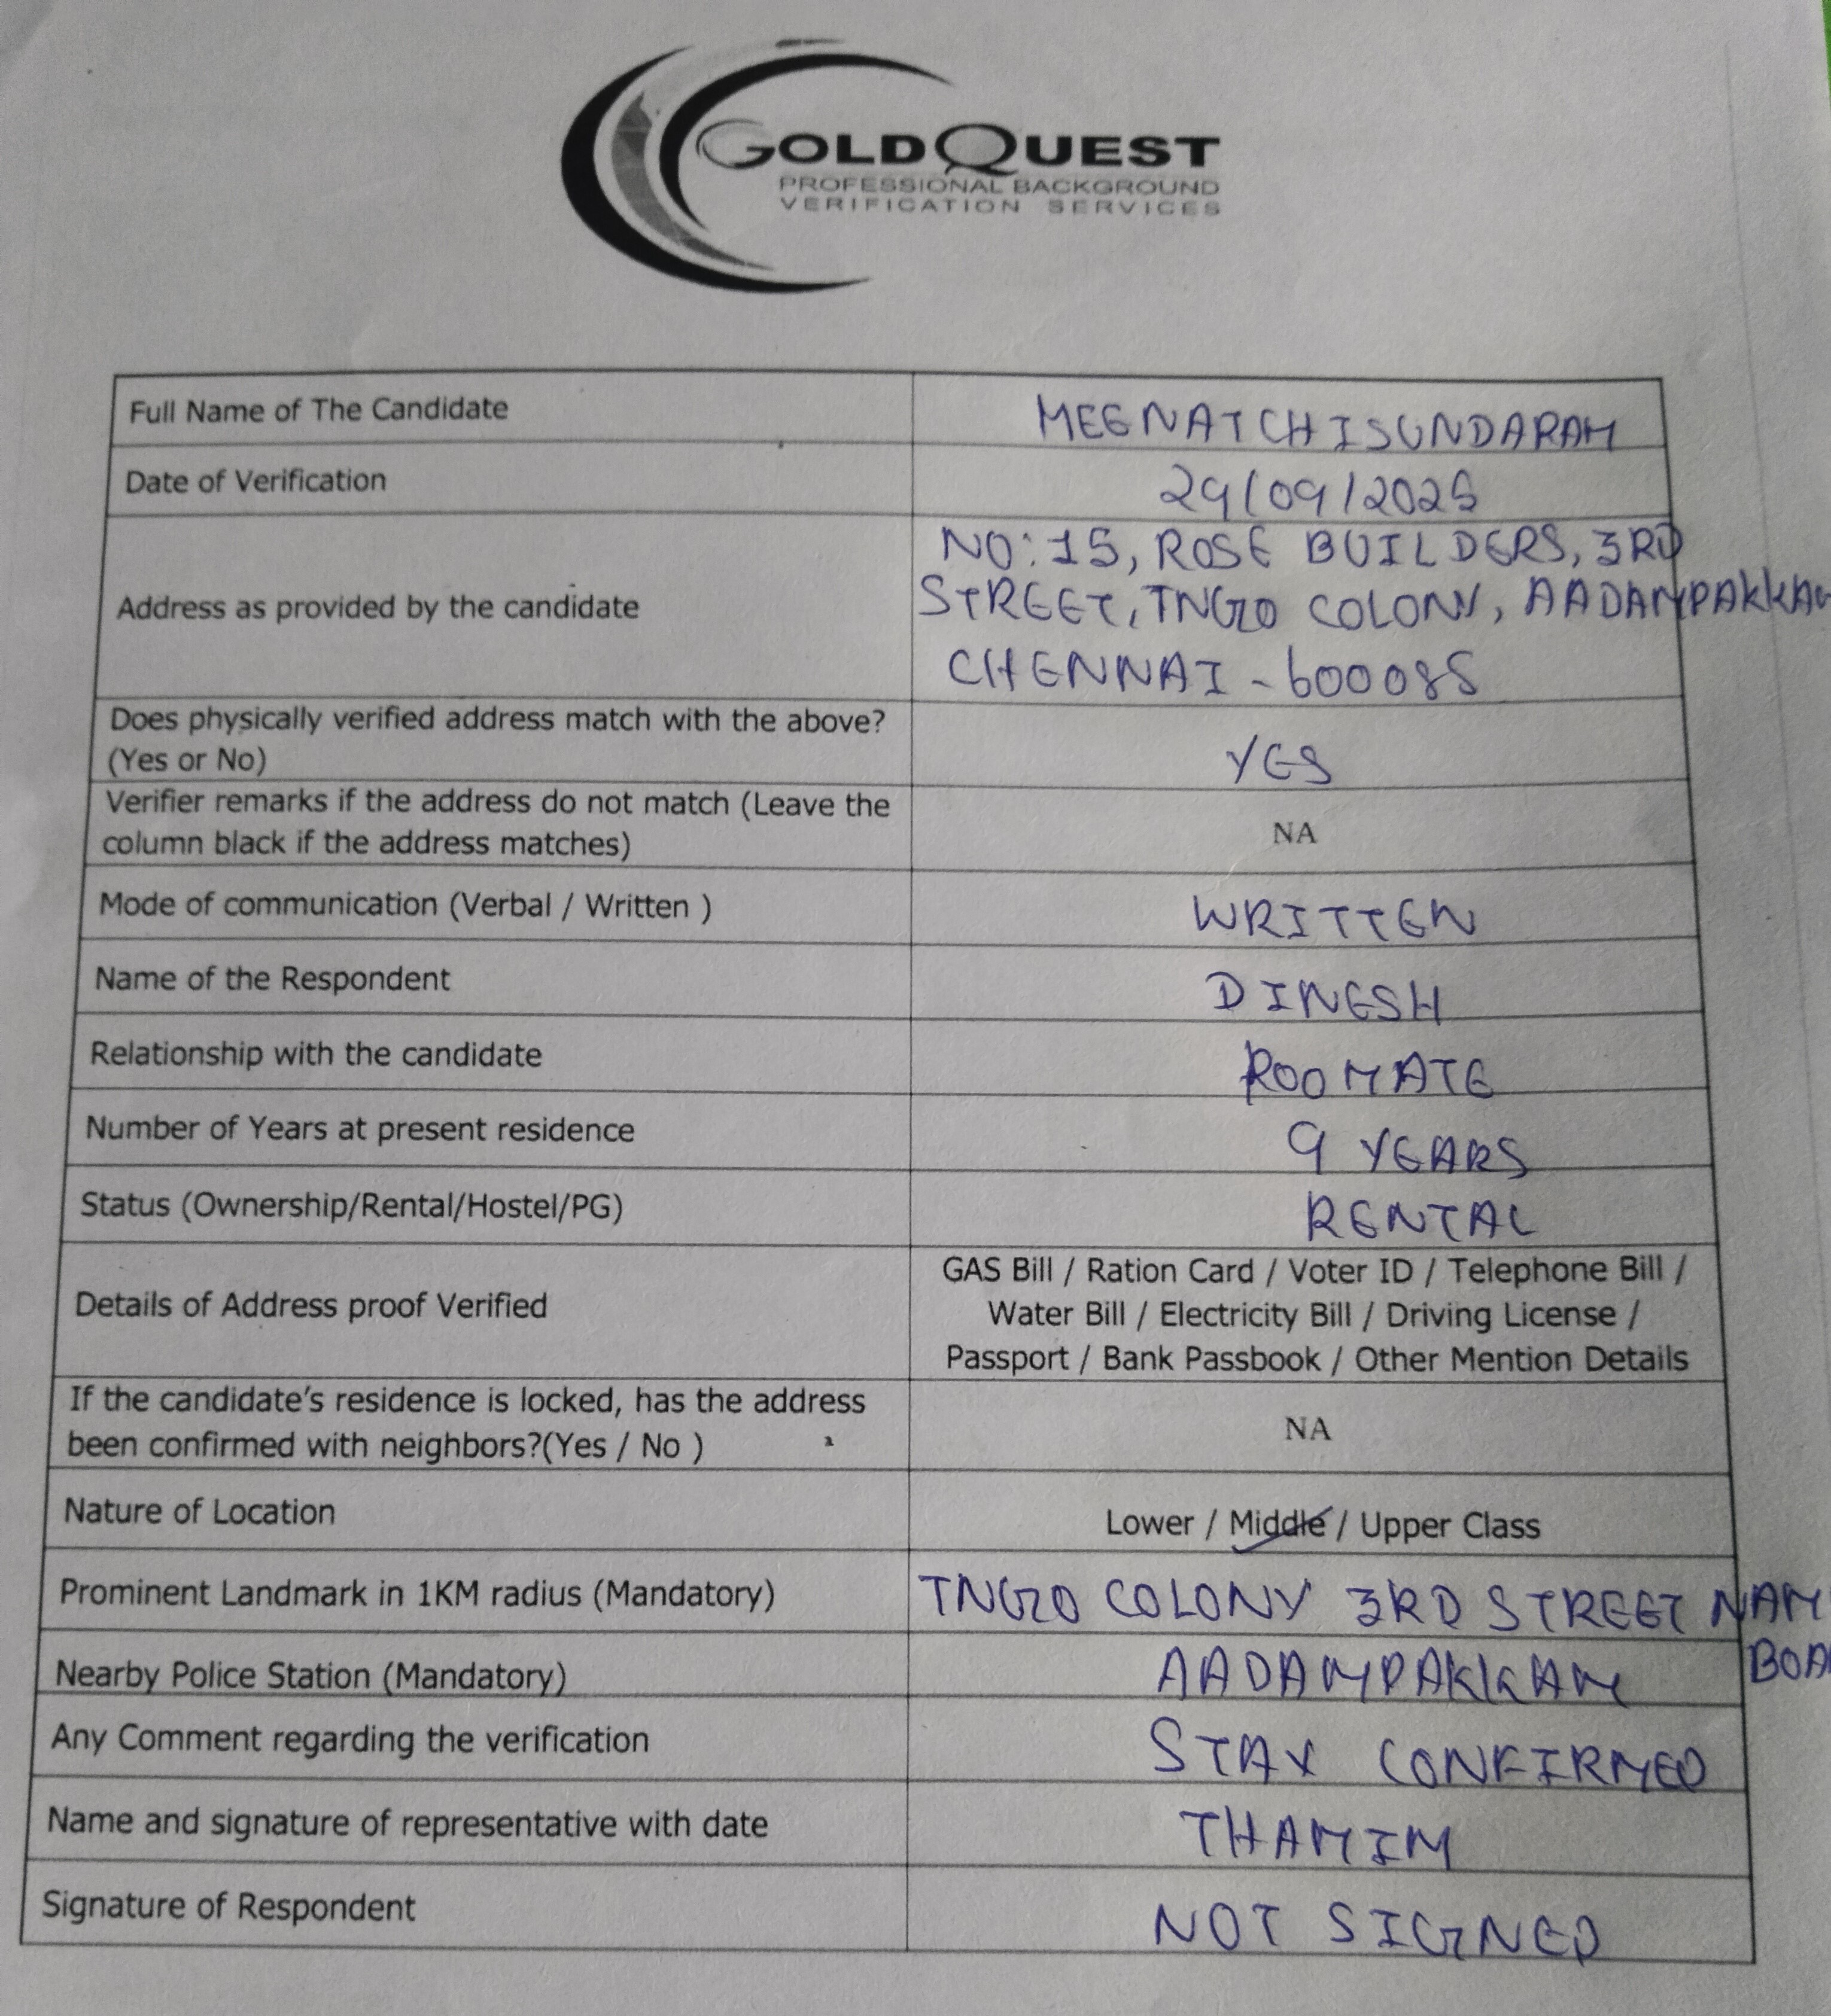 GOLDQUEST
PROFESSIONAL BACKGROUND
VERIFICATION SERVICES
Full Name of The Candidate
MEENATCHISUNDARAM
Date of Verification
29/09/2025
Address as provided by the candidate
NO:15, ROSE BUILDERS, 3RD
STREET, TNGO COLONY, AADAMPAKKAM
CHENNAI - 600088
Does physically verified address match with the above?
(Yes or No)
YES
Verifier remarks if the address do not match (Leave the
column black if the address matches)
NA
Mode of communication (Verbal / Written )
WRITTEN
Name of the Respondent
DINESH
Relationship with the candidate
ROOMATE
Number of Years at present residence
9 YEARS
Status (Ownership/Rental/Hostel/PG)
RENTAL
Details of Address proof Verified
GAS Bill / Ration Card / Voter ID / Telephone Bill /
Water Bill / Electricity Bill / Driving License /
Passport / Bank Passbook / Other Mention Details
If the candidate's residence is locked, has the address
been confirmed with neighbors?(Yes / No )
NA
Nature of Location
Lower / Middle / Upper Class
Prominent Landmark in 1KM radius (Mandatory)
TNGO COLONY 3RD STREET NAM
BOA
Nearby Police Station (Mandatory)
AADAMPAKKAM
Any Comment regarding the verification
STAY CONFIRMED
Name and signature of representative with date
THAMIM
Signature of Respondent
NOT SIGNED